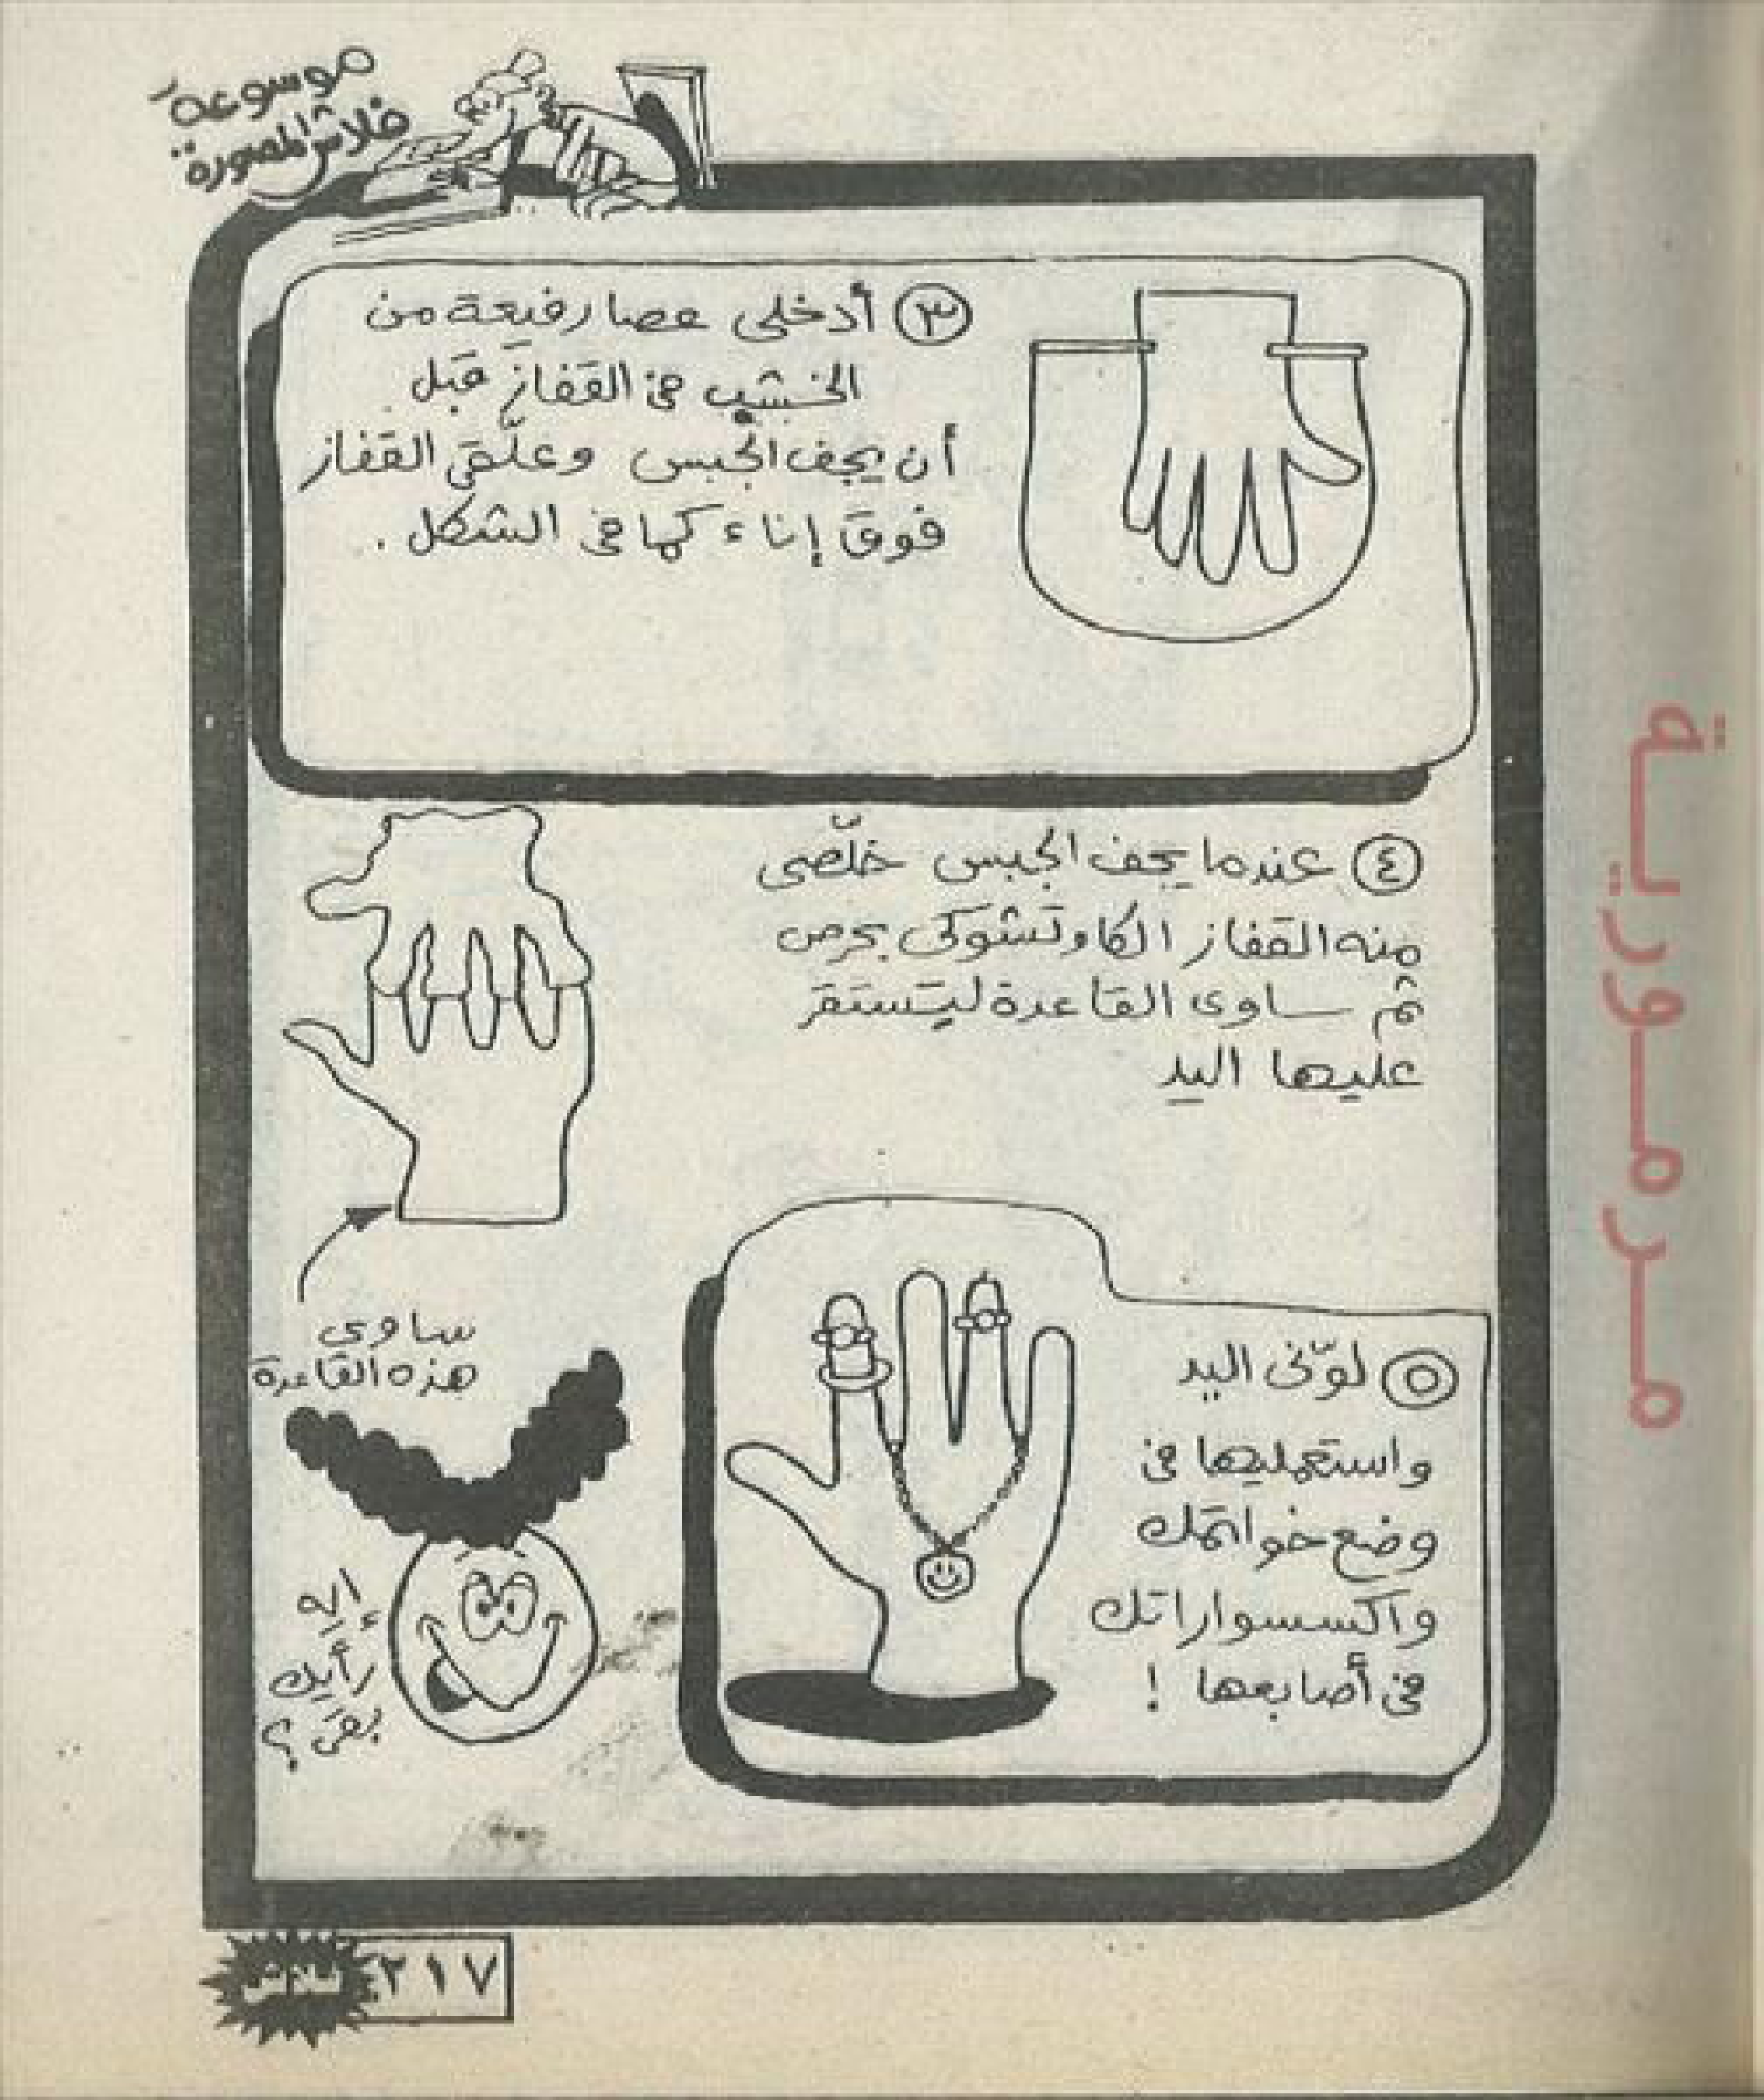 موسوعة
فلاش المصورة
٣ أدخلى عصا رفيعة من
الخشب فى القفاز قبل
أن يجف الجبس وعلّقى القفاز
فوق إناء كما فى الشكل .
٤ عندما يجف الجبس خلّصى
منه القفاز الكاوتشوكى بحرص
ثم ساوى القاعدة لتستقر
عليها اليد
ساوى
هذه القاعدة
٥ لوّنى اليد
واستعمليها فى
وضع خواتمك
واكسسواراتك
فى أصابعها !
إيه
رأيك
بقى ؟
فلاش ٢١٧
مرمورية